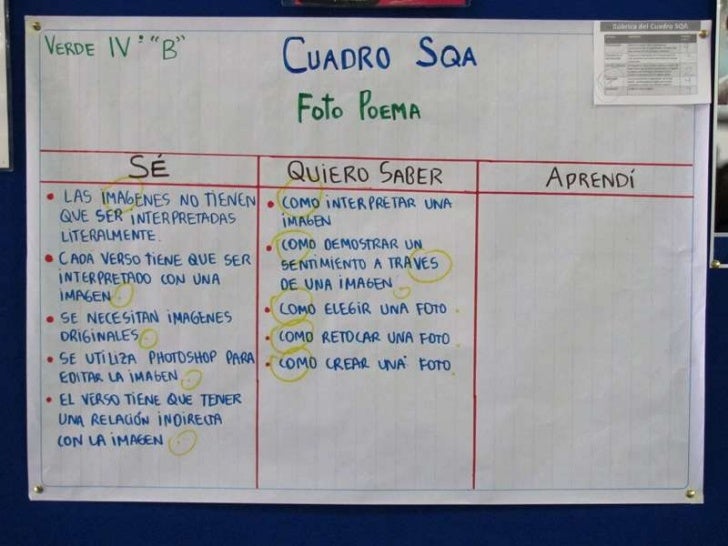 VERDE IV : "B"
CUADRO SQA
FOTO POEMA
Rúbrica del Cuadro SQA
SÉ
• LAS IMAGENES NO TIENEN
QUE SER INTERPRETADAS
LITERALMENTE.
• CADA VERSO TIENE QUE SER
INTERPRETADO CON UNA
IMAGEN.
• SE NECESITAN IMAGENES
ORIGINALES.
• SE UTILIZA PHOTOSHOP PARA
EDITAR LA IMAGEN.
• EL VERSO TIENE QUE TENER
UNA RELACIÓN INDIRECTA
CON LA IMAGEN.
QUIERO SABER
• COMO INTERPRETAR UNA
IMAGEN
• COMO DEMOSTRAR UN
SENTIMIENTO A TRAVES
DE UNA IMAGEN.
• COMO ELEGIR UNA FOTO.
• COMO RETOCAR UNA FOTO.
• COMO CREAR UNA FOTO.
APRENDÍ